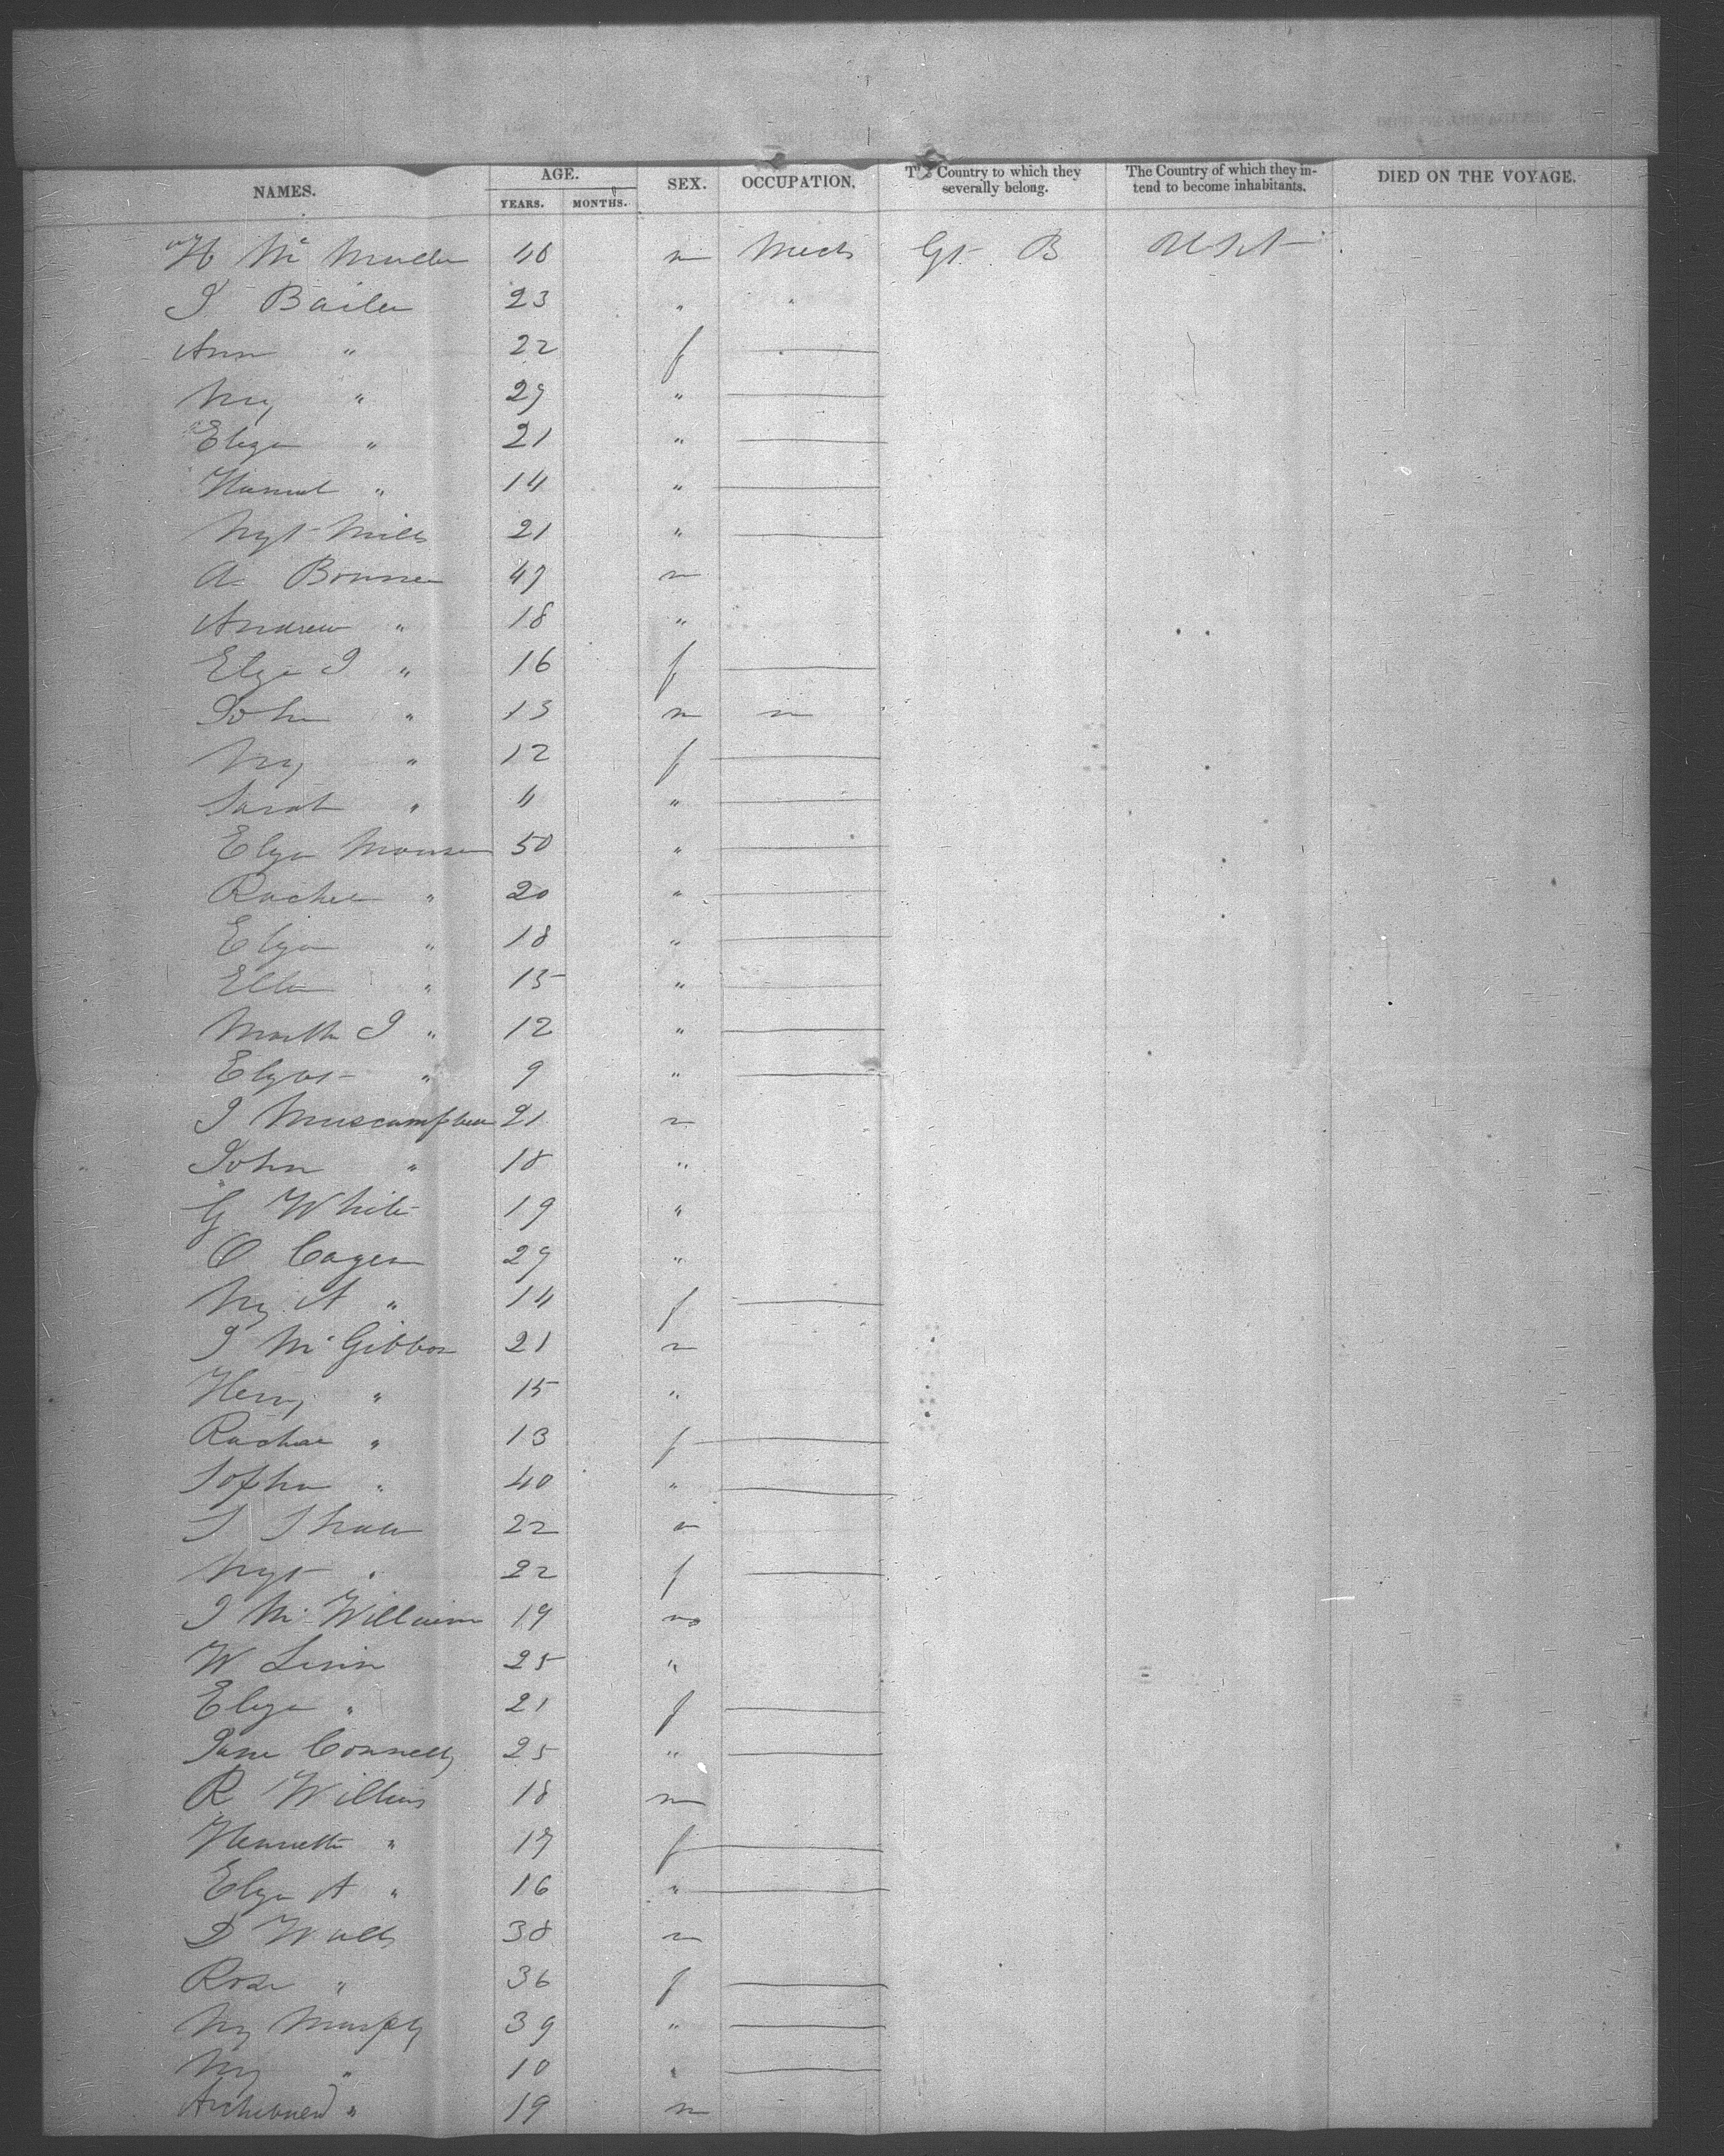 NAMES. AGE. SEX. OCCUPATION. The Country to which they severally belong. The Country of which they intend to become inhabitants. DIED ON THE VOYAGE.
YEARS. MONTHS.
H Mc Mullen 40 m Mech Gt B U St
J Bailey 23 " "
Ann " 22 f
My " 29 "
Eliza " 21 "
Hannah " 14 "
Mgt Mills 21 "
A 47 m
Andrew " 18 "
Eliza J " 16 f
John " 13 m m
My " 12 f
Sarah " 4 "
Eliza 50 "
Rachel " 20 "
Eliza " 18 "
Ellen " 15 "
Martha J " 12 "
Elizbt " 9 "
J 21 m
John " 18 "
G White 19 "
29 "
My A " 14 f
J Mc Gibbon 21 m
Henry " 15 "
Rachel " 13 f
Sophia " 40 "
S Shaw 22 m
Mgt " 22 f
J Mc William 19 m
W Linn 25 "
Eliza " 21 f
Jane Connelly 25 "
R Wilkins 18 m
Henrietta " 17 f
Eliza A " 16 "
D Walls 38 m
Rose " 36 f
My Murphy 39 "
My " 10 "
Archibald " 19 m